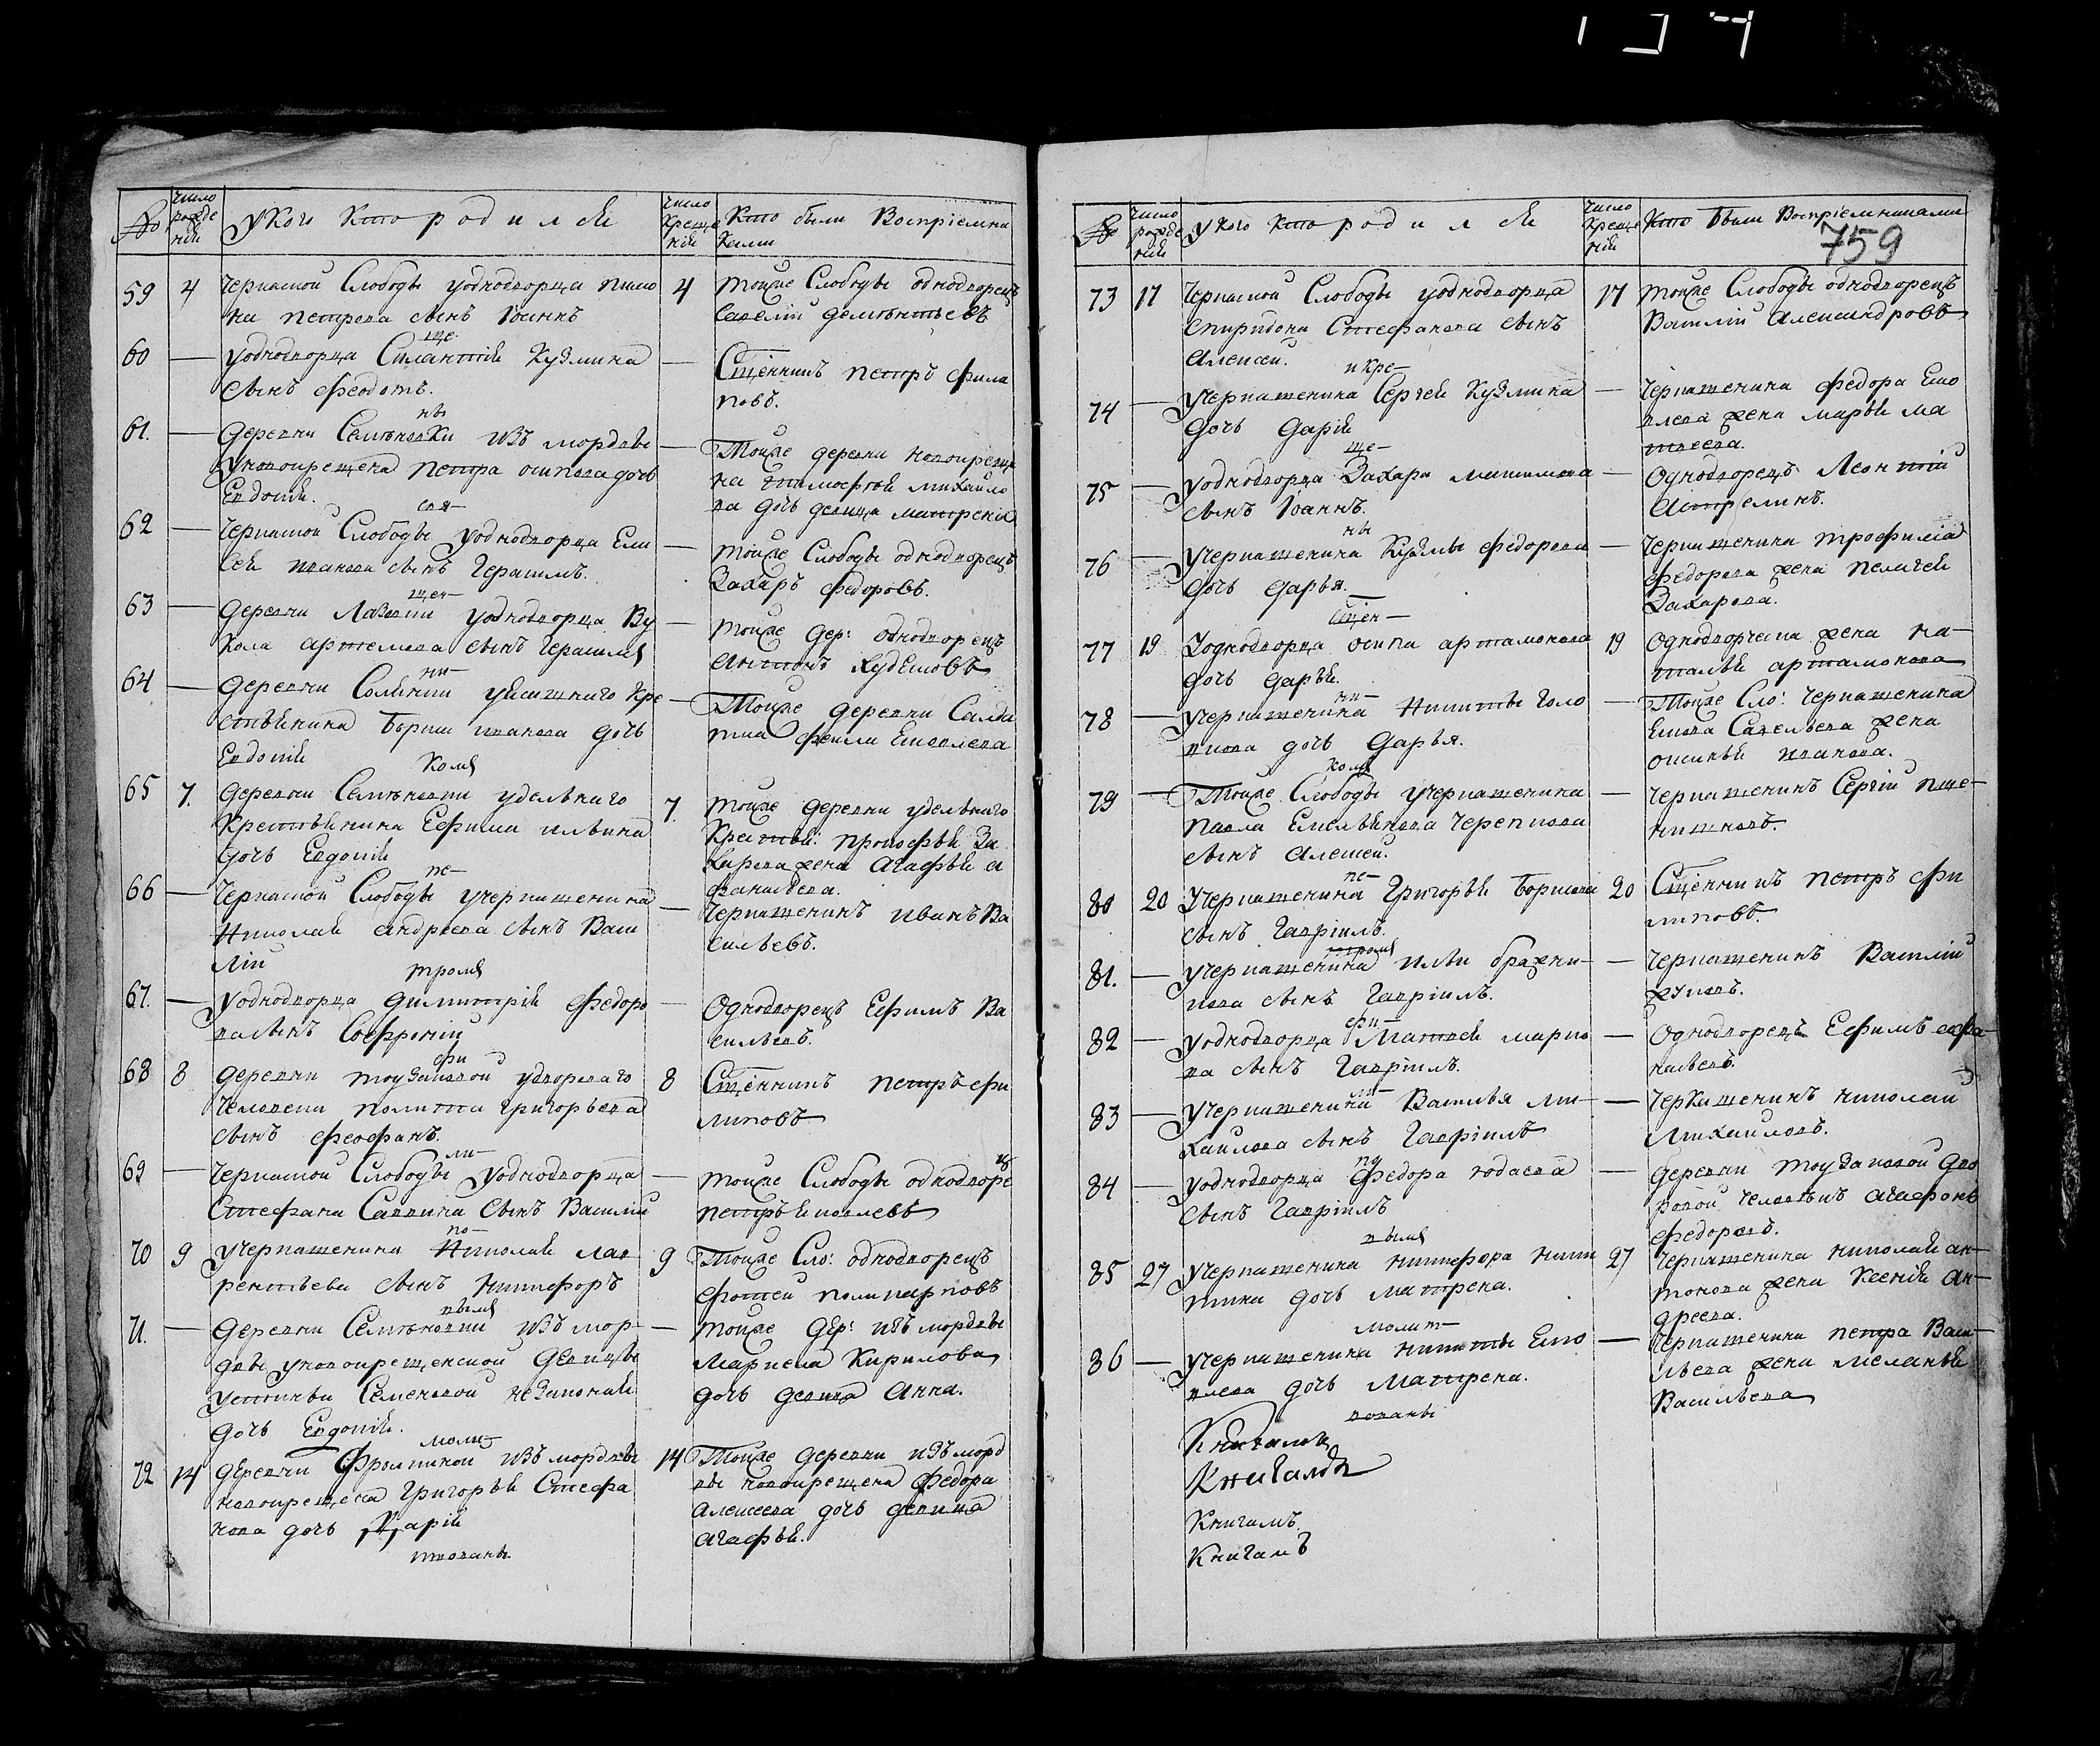 №
число рожде ній
у кого кто р о д и л ся
число Креще ній
Кто были Воспріемни
ками
59 4 Черкаской Слободы уоднодворца
на петрова сынъ Іоаннъ
4 тойже Слободы однодворецъ
Савелій дементьевъ
ще
60 — уоднодворца Силантія Кузмина
сынъ феодотъ.
— Сщенникъ петръ фили
повъ.
ны
61. — деревни Семѣновки изъ мордвы
уновокрещена петра осипова дочь
Евдокія.
— Тойже деревни новокреще
на тимофея михайло
ва дочь девица матрена
свя—
62 — Черкаской Слободы уоднодворца Ели
сея иванова сынъ Герасимъ.
— тойже Слободы однодворецъ
Захаръ федоровъ.
щен—
63 — деревни уоднодворца Ву
кола артемева сынъ Герасимъ
— тойже дер: однодворецъ
Антонъ
ни—
64 — деревни кре
стьянина бориса иванова дочь
Евдокія
— Тойже деревни Салда
тка
комъ
65 7. деревни Семѣновки удельнаго
Крестьянина Ефима ильина
дочь Евдокія
7. тойже деревни удельнаго
Крестья: прокофья За
харова жена Агафья а
фанасьева.
пе—
66 — Черкаской Слободы учеркашенина
Николая андреева сынъ Васи
лій
— Черкашенинъ иванъ Ва
сильевъ.
тромъ
67. — уоднодворца димитрія федоро
ва сынъ Софроній
— Однодворецъ Ефимъ Ва
сильевъ.
фи
68 8 деревни удвороваго
человека Григорьева
сынъ феофанъ.
8 Сщенникъ петръ фи
липовъ
ли—
69 — Черкаской Слободы уоднодворца
Стефана Саввина сынъ Василій
— тойже Слободы однодворе
цъ
петръ яковлевъ
по—
70 9 учеркашенина Николая лав
рентьева сынъ Никифоръ
9 Тойже Сло: однодворецъ
фотей поликарповъ
вымъ
71. — деревни Семѣновки изъ мор—
двы уновокрещенской девицы
устиньи Семеновой незаконная
дочь Евдокія.
— тойже дер: изъ мордвы
Кирилова
дочь девица Анна.
моли—
72 14 деревни изъ мордвы
новокрещена Григорья Стефа
нова дочь Дарія
14 Тойже деревни изъ морд
вы новокрещена федора
Алексеева дочь девица
агафья.
твованы
№
число рожде ній
у кого кто р о д и л ся
число Креще ній
Кто были Воспріемниками
759
73 17 Черкаской Слободы уоднодворца
спиридона Стефанова сынъ
Алексей.
17 тойже Слободы однодворецъ
Василій Александровъ
и кре—
74 — учеркашенина Сергея Кузмина
дочь дарія
— Черкашенина федора Яко
влева жена марья ма
твеева.
ще—
75 — уоднодворца Захара максимова
сынъ Іоаннъ.
— Однодворецъ Леонтій
ны
76 — учеркашенина Кузмы федорова
дочь дарья.
— Черкашенина трофима
федорова жена пелагея
Захарова.
сщен—
77 19 Уоднодворца осипа артамонова
дочь дарья.
19 Однодворчиха жена на—
талья артамонова
ни—
78 — учеркашенина Никиты Голо
вкова дочь дарья.
— Тойже Сло: Черкашенина
Якова Савельева жена
аксинья иванова.
комъ
79 — Тойже Слободы учеркашенина
павла Емельянова
сынъ Алексей.
— Черкашенинъ Сергій пше—
нишновъ.
пе—
80 20 учеркашенина Григорья борисова
сынъ Гавріилъ.
20 Сщенникъ петръ фи
липовъ.
тромъ
81. — учеркашенина ильи бражни—
кова сынъ Гавріилъ.
— Черкашенинъ Василій
жуковъ.
фи—
82 — уоднодворца Матвея марко
ва сынъ Гавріилъ.
— Однодворецъ Ефимъ афа
насьевъ.
ли—
83 — учеркашенина Василья ми—
хайлова сынъ Гавріилъ
— Черкашенинъ николай
михайловъ.
84 — уоднодворца федора юдаева
сынъ Гавріилъ
— деревни дво
ровой человѣкъ агафонъ
федоровъ.
вымъ
85 27 учеркашенина никифора
дочь матрена.
27 Черкашенина николая ан—
тонова жена Ксенія ан—
дреева.
молит—
86 — учеркашенина никиты Яко
влева дочь Матрена.
— Черкашенина петра Васи—
льева жена меланья
Васильева
вованы
Книгамъ
Книгамъ
Книгамъ.
Книгамъ